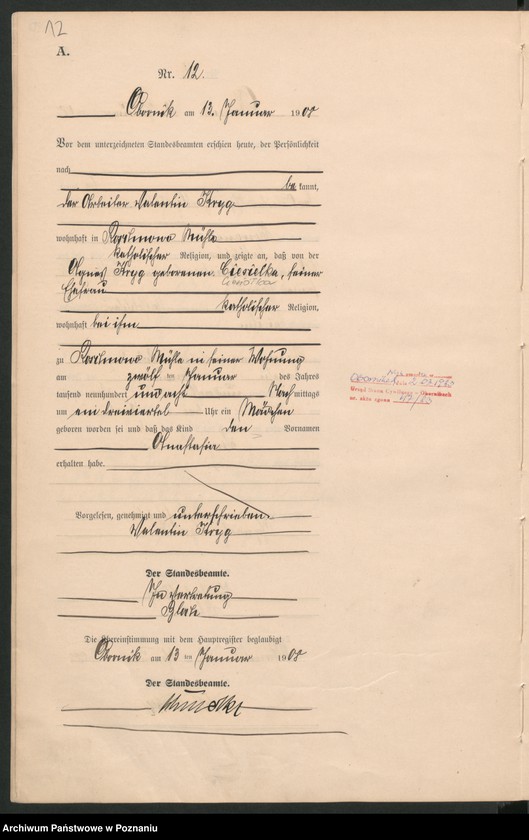 12
A.
Nr. 12.
Obornik am 13. Januar 1908
Vor dem unterzeichneten Standesbeamten erschien heute, der Persönlichkeit
nach
be kannt,
der Arbeiter Valentin Kryg
wohnhaft in Mühle
katholischer Religion, und zeigte an, daß von der
Agnes Kryg geborenen, seiner
Ehefrau
katholischer Religion,
wohnhaft bei ihm
zu Mühle in seiner Wohnung
am zwölften Januar des Jahres
tausend neunhundert und acht Nachmittags
um ein dreiviertel Uhr ein Mädchen
geboren worden sei und daß das Kind den Vornamen
Anastasia
erhalten habe.
Vorgelesen, genehmigt und unterschrieben.
Valentin Kryg
Der Standesbeamte.
In Vertretung
Die Übereinstimmung mit dem Hauptregister beglaubigt
Obornik am 13 ten Januar 1908
Der Standesbeamte.
Archiwum Państwowe w Poznaniu